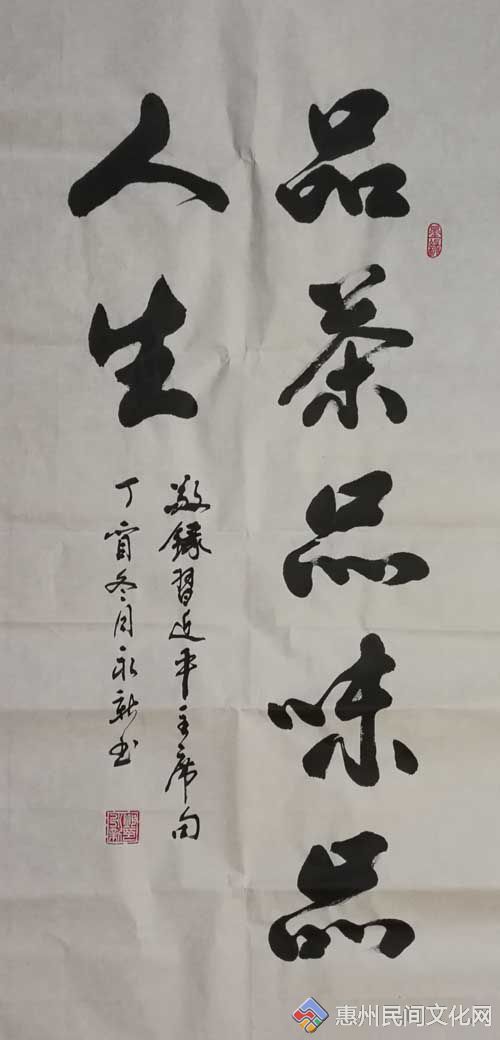 品茶品味品
人生
敬録習近平主席句
丁酉冬月永新书
惠州民间文化网